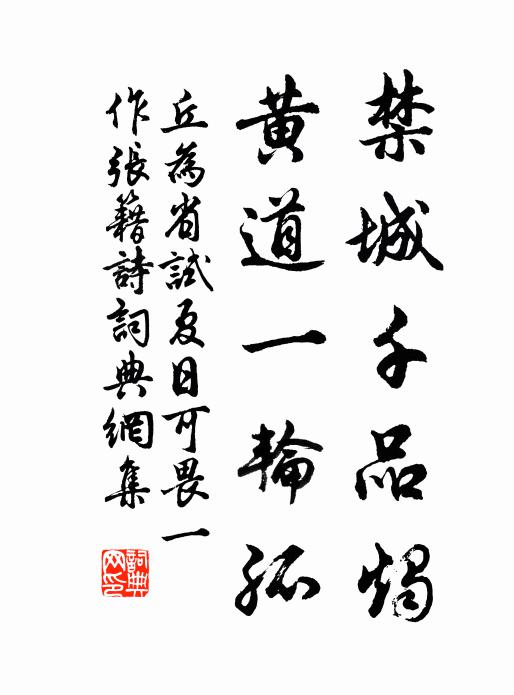 禁城千品燭
黄道一輪孤
丘為省試夏日可畏一
作張籍詩詞典網集
詞典網印